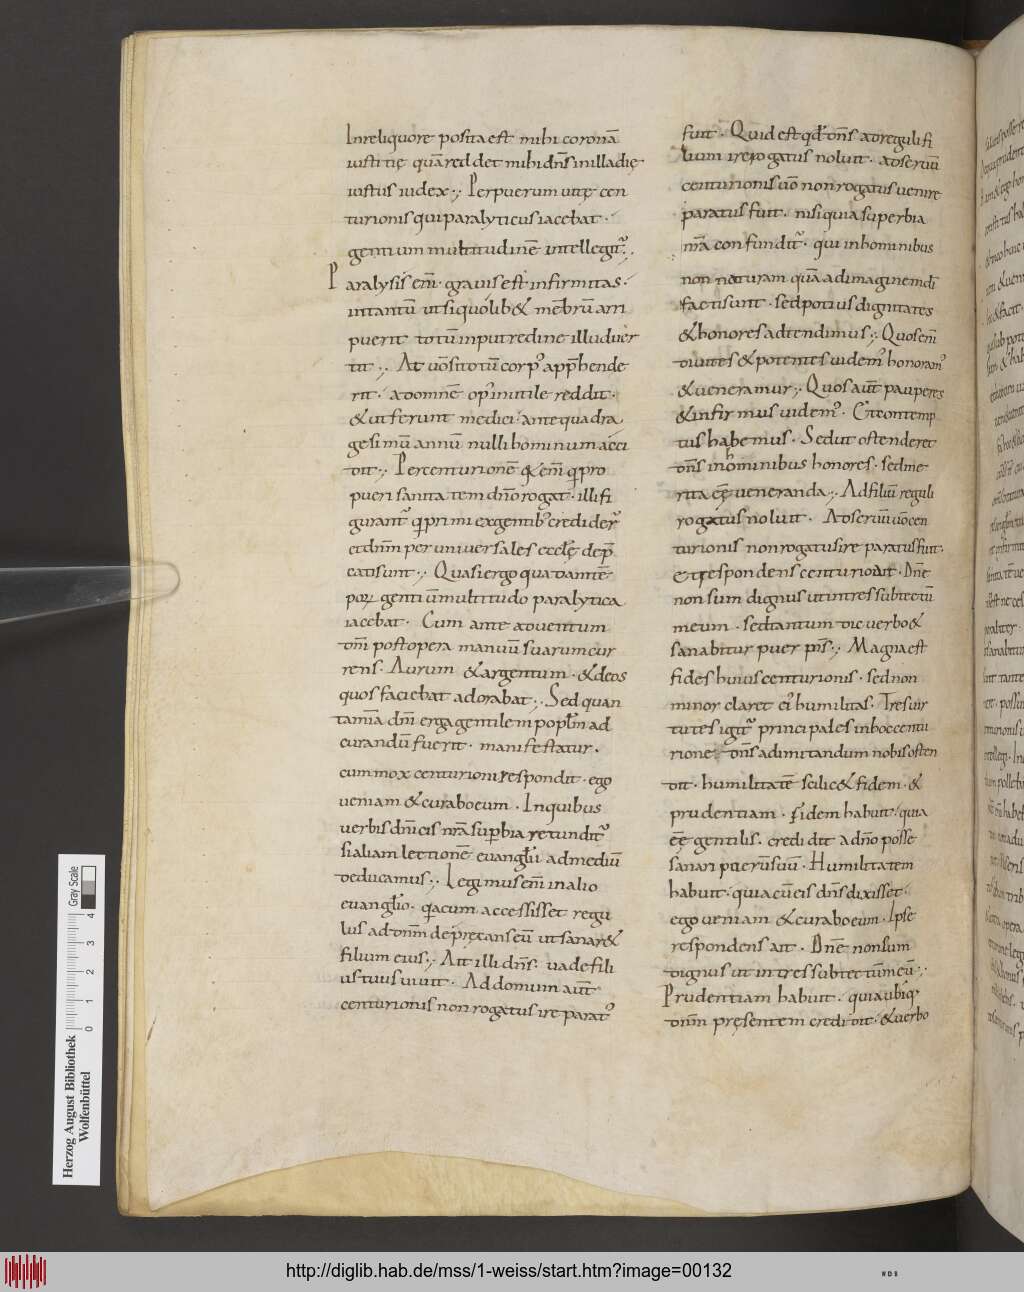 In reliquo repositaest mihi coronā
iustitię quā reddet mihi dn̄s inilladię
iustus iudex·;· Perpuerum ūtę cen
turionis quiparalyticusiacebat·
gentium multitudinē intellegit̄·;
Paralysis em̄· grauis est infirmitas·
intantū utsiquolib& mēbrū arri
puerit totū inputredine illuduer
tit·;· At ūo sitotū corp' app̄hende
rit· adomnē op' inutile reddit·
&utferunt medici· antequadra
gesimū annū nulli hominum acci
dit·;· Percenturionē
pueri sanitatem dn̄o rogat· illi fi
gurant̄ qui primi exgentib' credider̄
etdn̄m per uniuersales eccłę dep̄
catisunt·;· Quasi ergo quadam tē
por gentiū multitudo paralytica
iacebat· Cum ante aduentum
dn̄i post opera manuū suarum cur
rens· Aurum &argentum· &deos
quos faciebat adorabat·;· Sed quan
tamīa dn̄i erga gentilem popłm ad
curandū fuerit· manifestatur·
cum mox centurioni respondit· ego
ueniam &curaboeum· Inquibus
uerbis dn̄icis nr̄a supbia retundit̄
sialiam lectionē euangłii admediū
deducamus·;· Legimus em̄ inalio
euangłio· quia cum accessisset regu
lus ad dn̄m deprecans eū utsanar&
filium eius·;· Ait illi dn̄s· uade fili
us tuus uiuit· Ad domum aūt
centurionis non rogatus ire parat'
fuit· Quid est qd dn̄s ad reguli fi
lium ire rogatus noluit· adseruū
centurionis ūo non rogatus uenire
paratus fuit· nisi quia superbia
nr̄a confundit̄· qui inhominibus
non naturam quā adimaginem dī
facti sunt· sed potius dignitates
&honores adtendimus·;· Quos em̄
diuites &potentes uidem' honoram'
&ueneramur·;· Quos aūt pauperes
&infirmus uidem'· Et contemp
tus habemus· Sed ut ostenderet
dn̄s inhominibus honores· sed me
rita eē ueneranda·;· Ad filiū reguli
rogatus noluit· Adseruū ūo cen
turionis non rogatus ire paratus fuit·
Et respondens centurio ait· Dn̄e
non sum dignus utintres subtectū
meum· sed tantum dic uerbo &
sanabitur puer m̄s·;· Magna est
fides huius centurionis· sed non
minor claret ei' humilitas· Tres uir
tutes igit̄ principales inhoc centu
rione· dn̄s adimitandum nobis osten
dit· humilitatē scilic& fidem· &
prudentiam· fidem habuit· quia
eēt gentilis· credidit ad dn̄o posse
sanari puerū suū· Humilitatem
habuit· quia cū eis dn̄s dixisset·
ego ueniam &curaboeum· Ipse
respondens ait· Dn̄e non sum
dignus ut intres subtectū meū·;·
Prudentiam habuit· quia ubiq·
dn̄m presentem credidit· &uerbo
Herzog August Bibliothek
Wolfenbüttel
0 1 2 3 4
Gray Scale
http://diglib.hab.de/mss/1-weiss/start.htm?image=00132